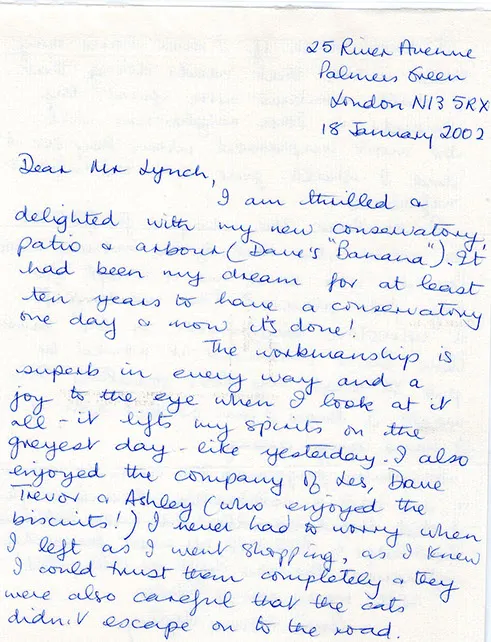 25 River Avenue
Palmers Green
London N13 5RX
18 January 2002
Dear Mr Lynch,
I am thrilled &
delighted with my new conservatory,
patio & arbour (Dave's "Banana"). It
had been my dream for at least
ten years to have a conservatory
one day & now it's done!
The workmanship is
superb in every way and a
joy to the eye when I look at it
all - it lifts my spirits on the
greyest day - like yesterday. I also
enjoyed the company of Les, Dave
Trevor & Ashley (who enjoyed the
biscuits!) I never had to worry when
I left as I went shopping, as I knew
I could trust them completely & they
were also careful that the cats
didn't escape on to the road.